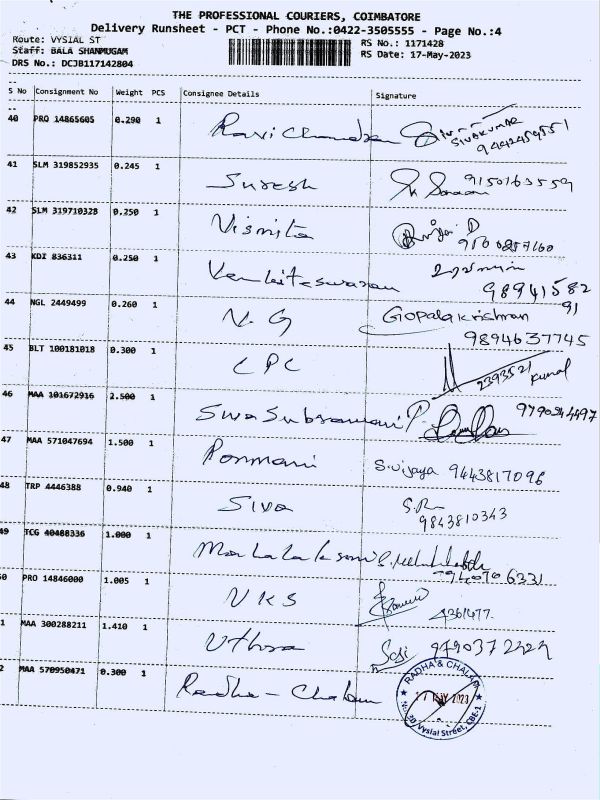 THE PROFESSIONAL COURIERS, COIMBATORE
Delivery Runsheet - PCT - Phone No.:0422-3505555 - Page No.:4
Route: VYSIAL ST
RS No.: 1171428
Staff: BALA SHANMUGAM
RS Date: 17-May-2023
DRS No.: DCJB117142804
S No Consignment No Weight PCS Consignee Details Signature
40 PRO 14865605 0.290 1 Ravi Chandran SIVAKUMAR
9442459551
41 SLM 319852935 0.245 1 Suresh 9150163559
42 SLM 319710328 0.250 1 Vismita
43 KDI 836311 0.250 1 Venkiteswaran
98941582
91
44 NGL 2449499 0.260 1 N.G Gopalakrishnan
9894637745
45 BLT 100181018 0.300 1 CPC
2393521 Kumal
46 MAA 101672916 2.500 1 Siva Subramani P.
47 MAA 571047694 1.500 1 Ponmani S.vijaya 9443817096
48 TRP 4446388 0.940 1 Siva S.R
9843810343
49 TCG 40488336 1.000 1 Mahalaksmi
0 PRO 14846000 1.005 1 VKS 4361477
1 MAA 300288211 1.410 1 Uthra Sasi
2 MAA 570950471 0.300 1 Radha - Chalam
RADHA & CHALAM
17 MAY 2023
No. 20, Vysial Street, CBE-1